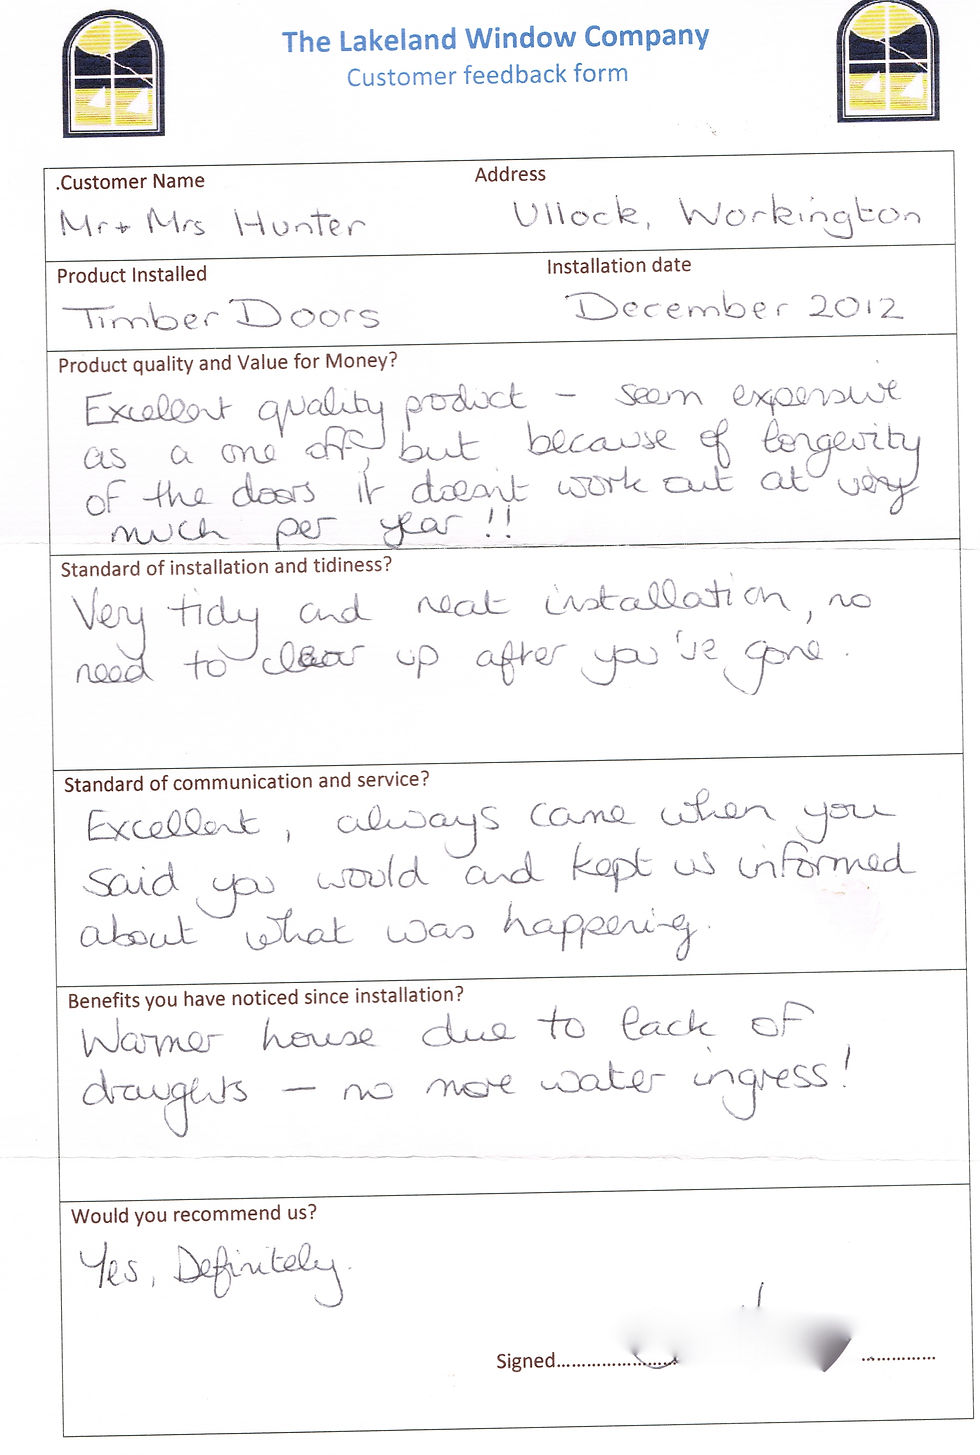 The Lakeland Window Company
Customer feedback form
.Customer Name
Address
Mr + Mrs Hunter
Ullock, Workington
Product Installed
Installation date
Timber Doors
December 2012
Product quality and Value for Money?
Excellent quality product - seem expensive
as a one off, but because of longevity
of the doors it doesn't work out at very
much per year !!
Standard of installation and tidiness?
Very tidy and neat installation, no
need to clear up after you've gone.
Standard of communication and service?
Excellent, always came when you
said you would and kept us informed
about what was happening.
Benefits you have noticed since installation?
Warmer house due to lack of
draughts - no more water ingress!
Would you recommend us?
Yes, Definitely.
Signed